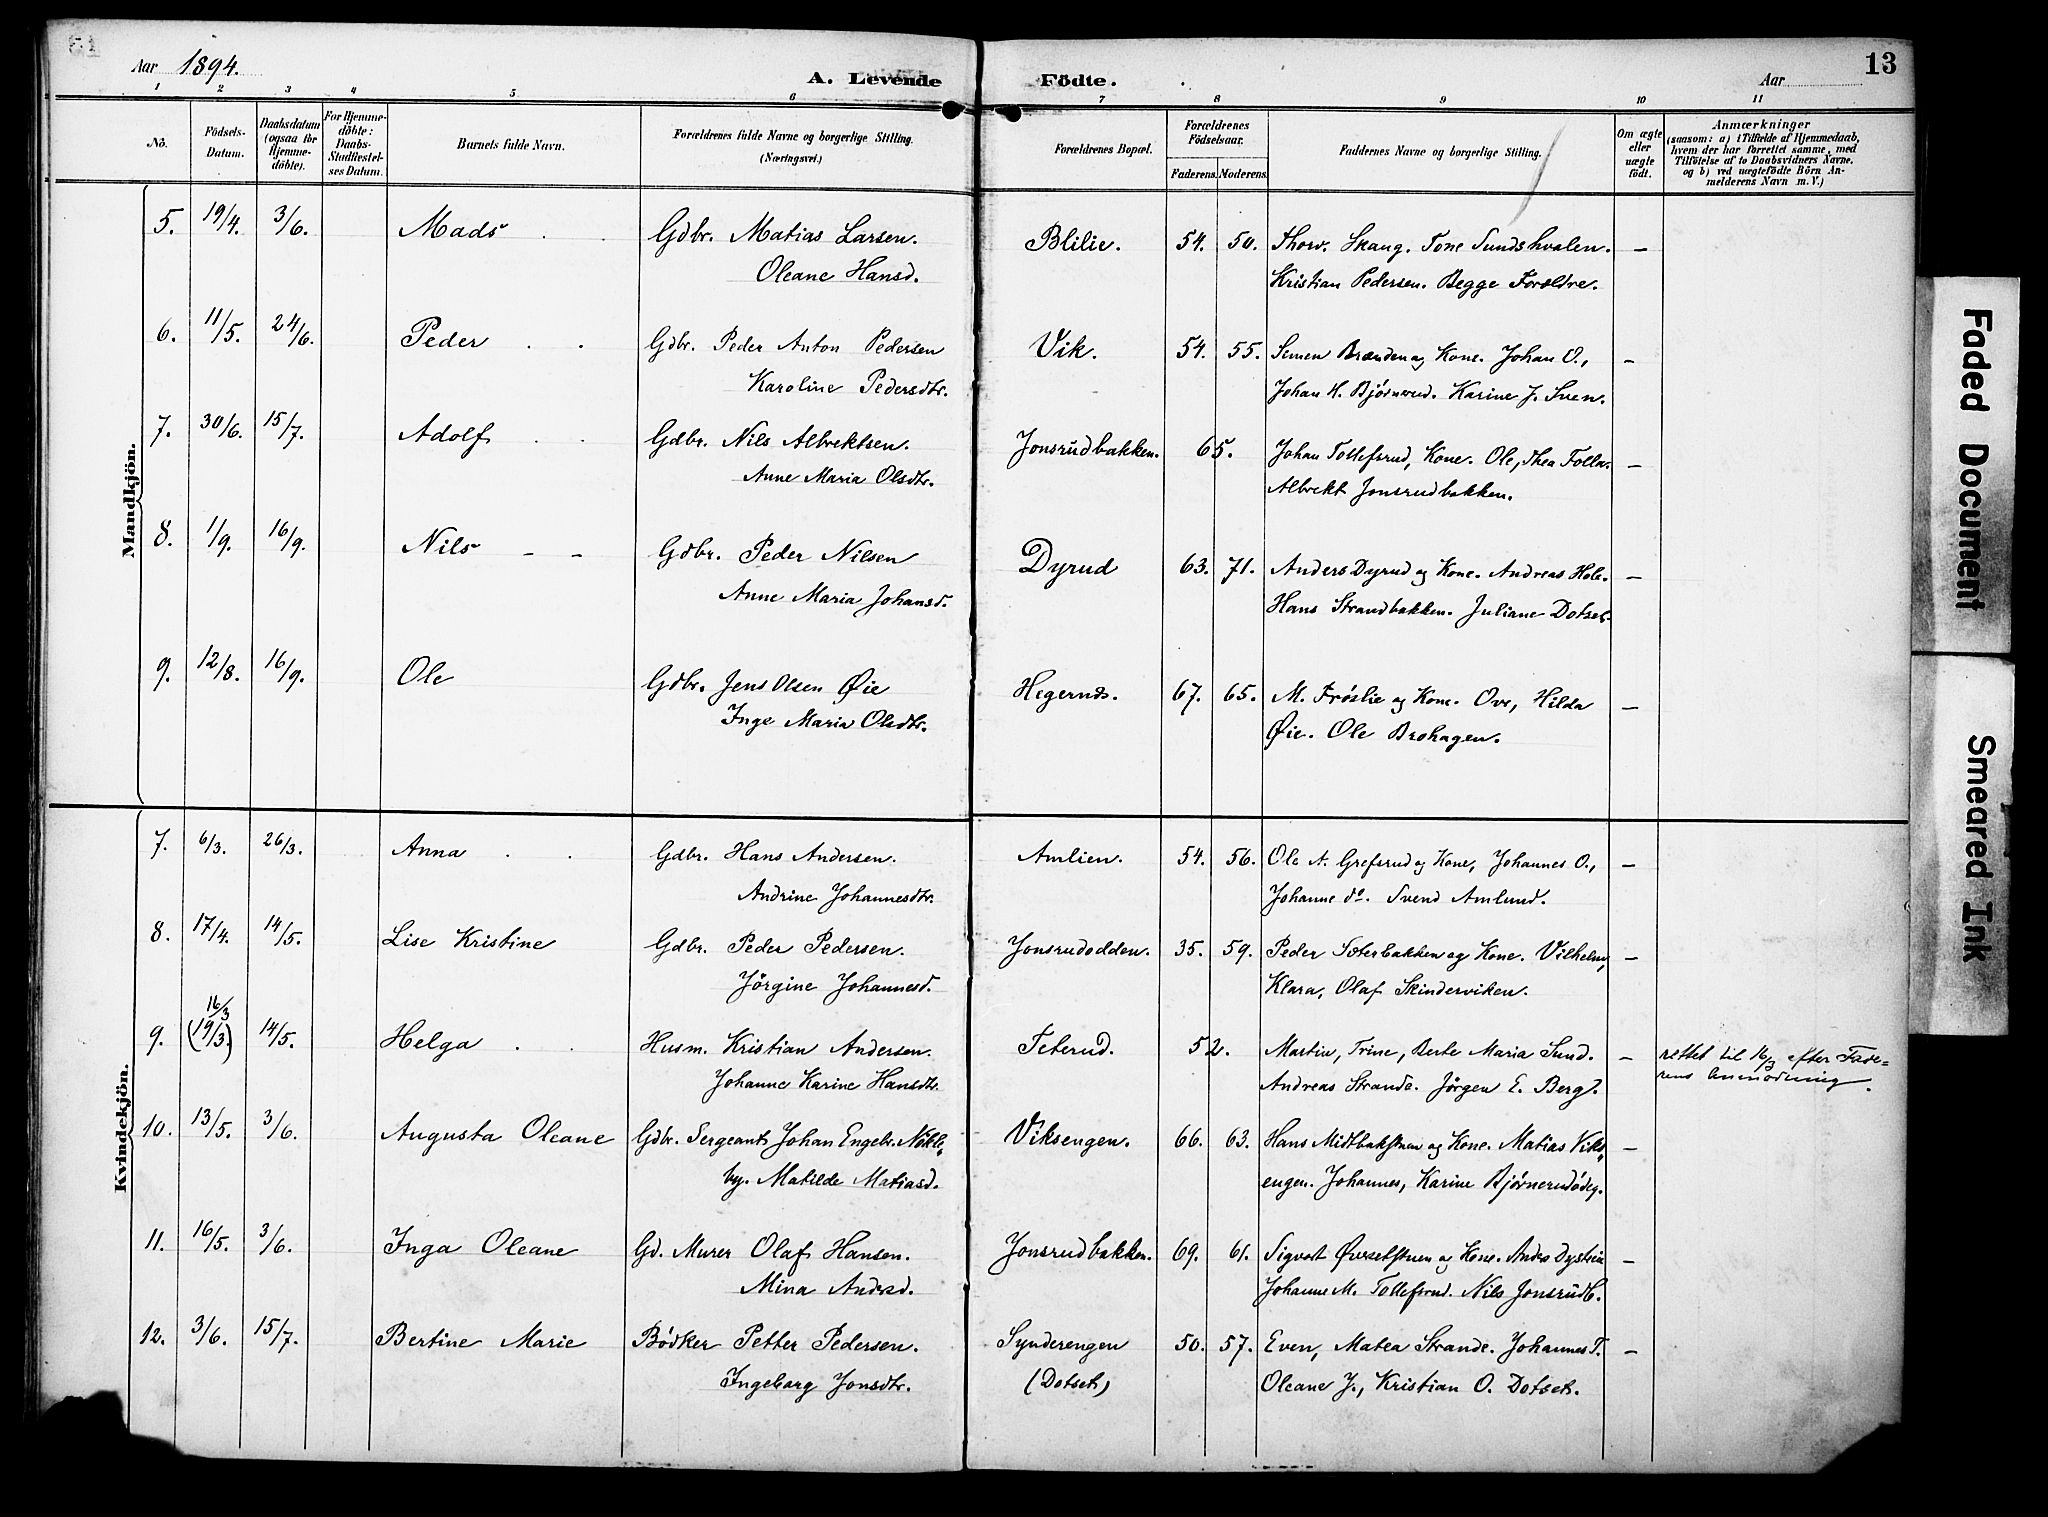 Aar 1894.
A. Levende Födte.
Aar
13
1 2 3 4 5 6 7 8 9 10 11
Nö.
Födsels-Datum.
Daabsdatum (ogsaa for Hjemme-döbte).
For Hjemme-döbte: Daabs-Stadfæstel-ses Datum.
Barnets fulde Navn.
Forældrenes fulde Navne og borgerlige Stilling. (Næringsvei.)
Forældrenes Bopæl.
Forældrenes Födselsaar.
Faderens. Moderens.
Faddernes Navne og borgerlige Stilling.
Om ægte eller uægte födt.
Anmærkninger
(saasom: a) i Tilfælde af Hjemmedaab, hvem der har forrettet samme, med Tilföielse af to Daabsvidners Navne, og b) ved uægtefödte Börn An-melderens Navn m. V.)
Mandkjön.
5. 19/4. 3/6. Mads Gdbr. Matias Larsen. Blilie. 54. 50. Thorv. Skaug. Tone Sundshvalen. —
Oleane Hansd. Kristian Pedersen. Begge Forældre.
6. 11/5. 24/6. Peder Gdbr. Peder Anton Pedersen Vik. 54. 55. Semen Brænden og Kone. Johan O., —
Karoline Pedersdtr. Johan H. Bjørnerud. Karine J. Sven.
7. 30/6. 15/7. Adolf Gdbr. Nils Albrektsen. Jonsrudbakken. 65. Johan Tollefsrud, Kone. Ole, Thea Tolla. —
Anne Maria Olsdtr. Albrekt Jonsrudbakken.
8. 1/9. 16/9. Nils Gdbr. Peder Nilsen Dyrud 63. 71. Anders Dyrud og Kone. Andreas Hole. —
Anne Maria Johansd. Hans Strandbakken. Juliane Dotset.
9. 12/8. 16/9. Ole Gdbr. Jens Olsen Øie Hegernæs. 67. 65. M. Frøslie og Kone. Ove, Hilda —
Inge Maria Olsdtr. Øie. Ole Brohagen.
Kvindekjön.
7. 6/3. 26/3. Anna Gdbr. Hans Andersen. Amlien. 54. 56. Ole A. Grefsrud og Kone, Johannes O., —
Andrine Johannesdtr. Johanne do. Svend Amlund.
8. 17/4. 14/5. Lise Kristine Gdbr. Peder Pedersen. Jonsrudodden. 35. 59. Peder Sæterbakken og Kone. Vilhelm, —
Jörgine Johannesd. Klara, Olaf Skinderviken.
16/3
9. (19/3.) 14/5. Helga Husm. Kristian Andersen. Teterud. 52. Martin, Trine, Berte Maria Sund. — rettet til 16/3 efter Fade-
Johanne Karine Hansdtr. Andreas Strande. Jørgen E. Berg. rens Anmodning.
10. 13/5. 3/6. Augusta Oleane Gdbr. Sergeant Johan Engebr. Nökle- Viksengen. 66. 63. Hans Midtbakstuen og Kone. Matias Viks- —
by. Matilde Matiasd. engen. Johannes, Karine Bjørnerudødeg.
11. 16/5. 3/6. Inga Oleane Gd. Murer Olaf Hansen. Jonsrudbakken. 69. 61. Sigvat Øvrestuen og Kone. Anders Dystein —
Mina Andrsd. Johanne M. Tollefsrud. Nils Jonsrudb.
12. 3/6. 15/7. Bertine Marie Bödker Petter Pedersen. Synderengen 50. 57. Even, Matea Strande. Johannes T. —
Ingeborg Jonsdtr. (Dotset) Oleane J., Kristian O. Dotset.
Faded Document
Smeared Ink